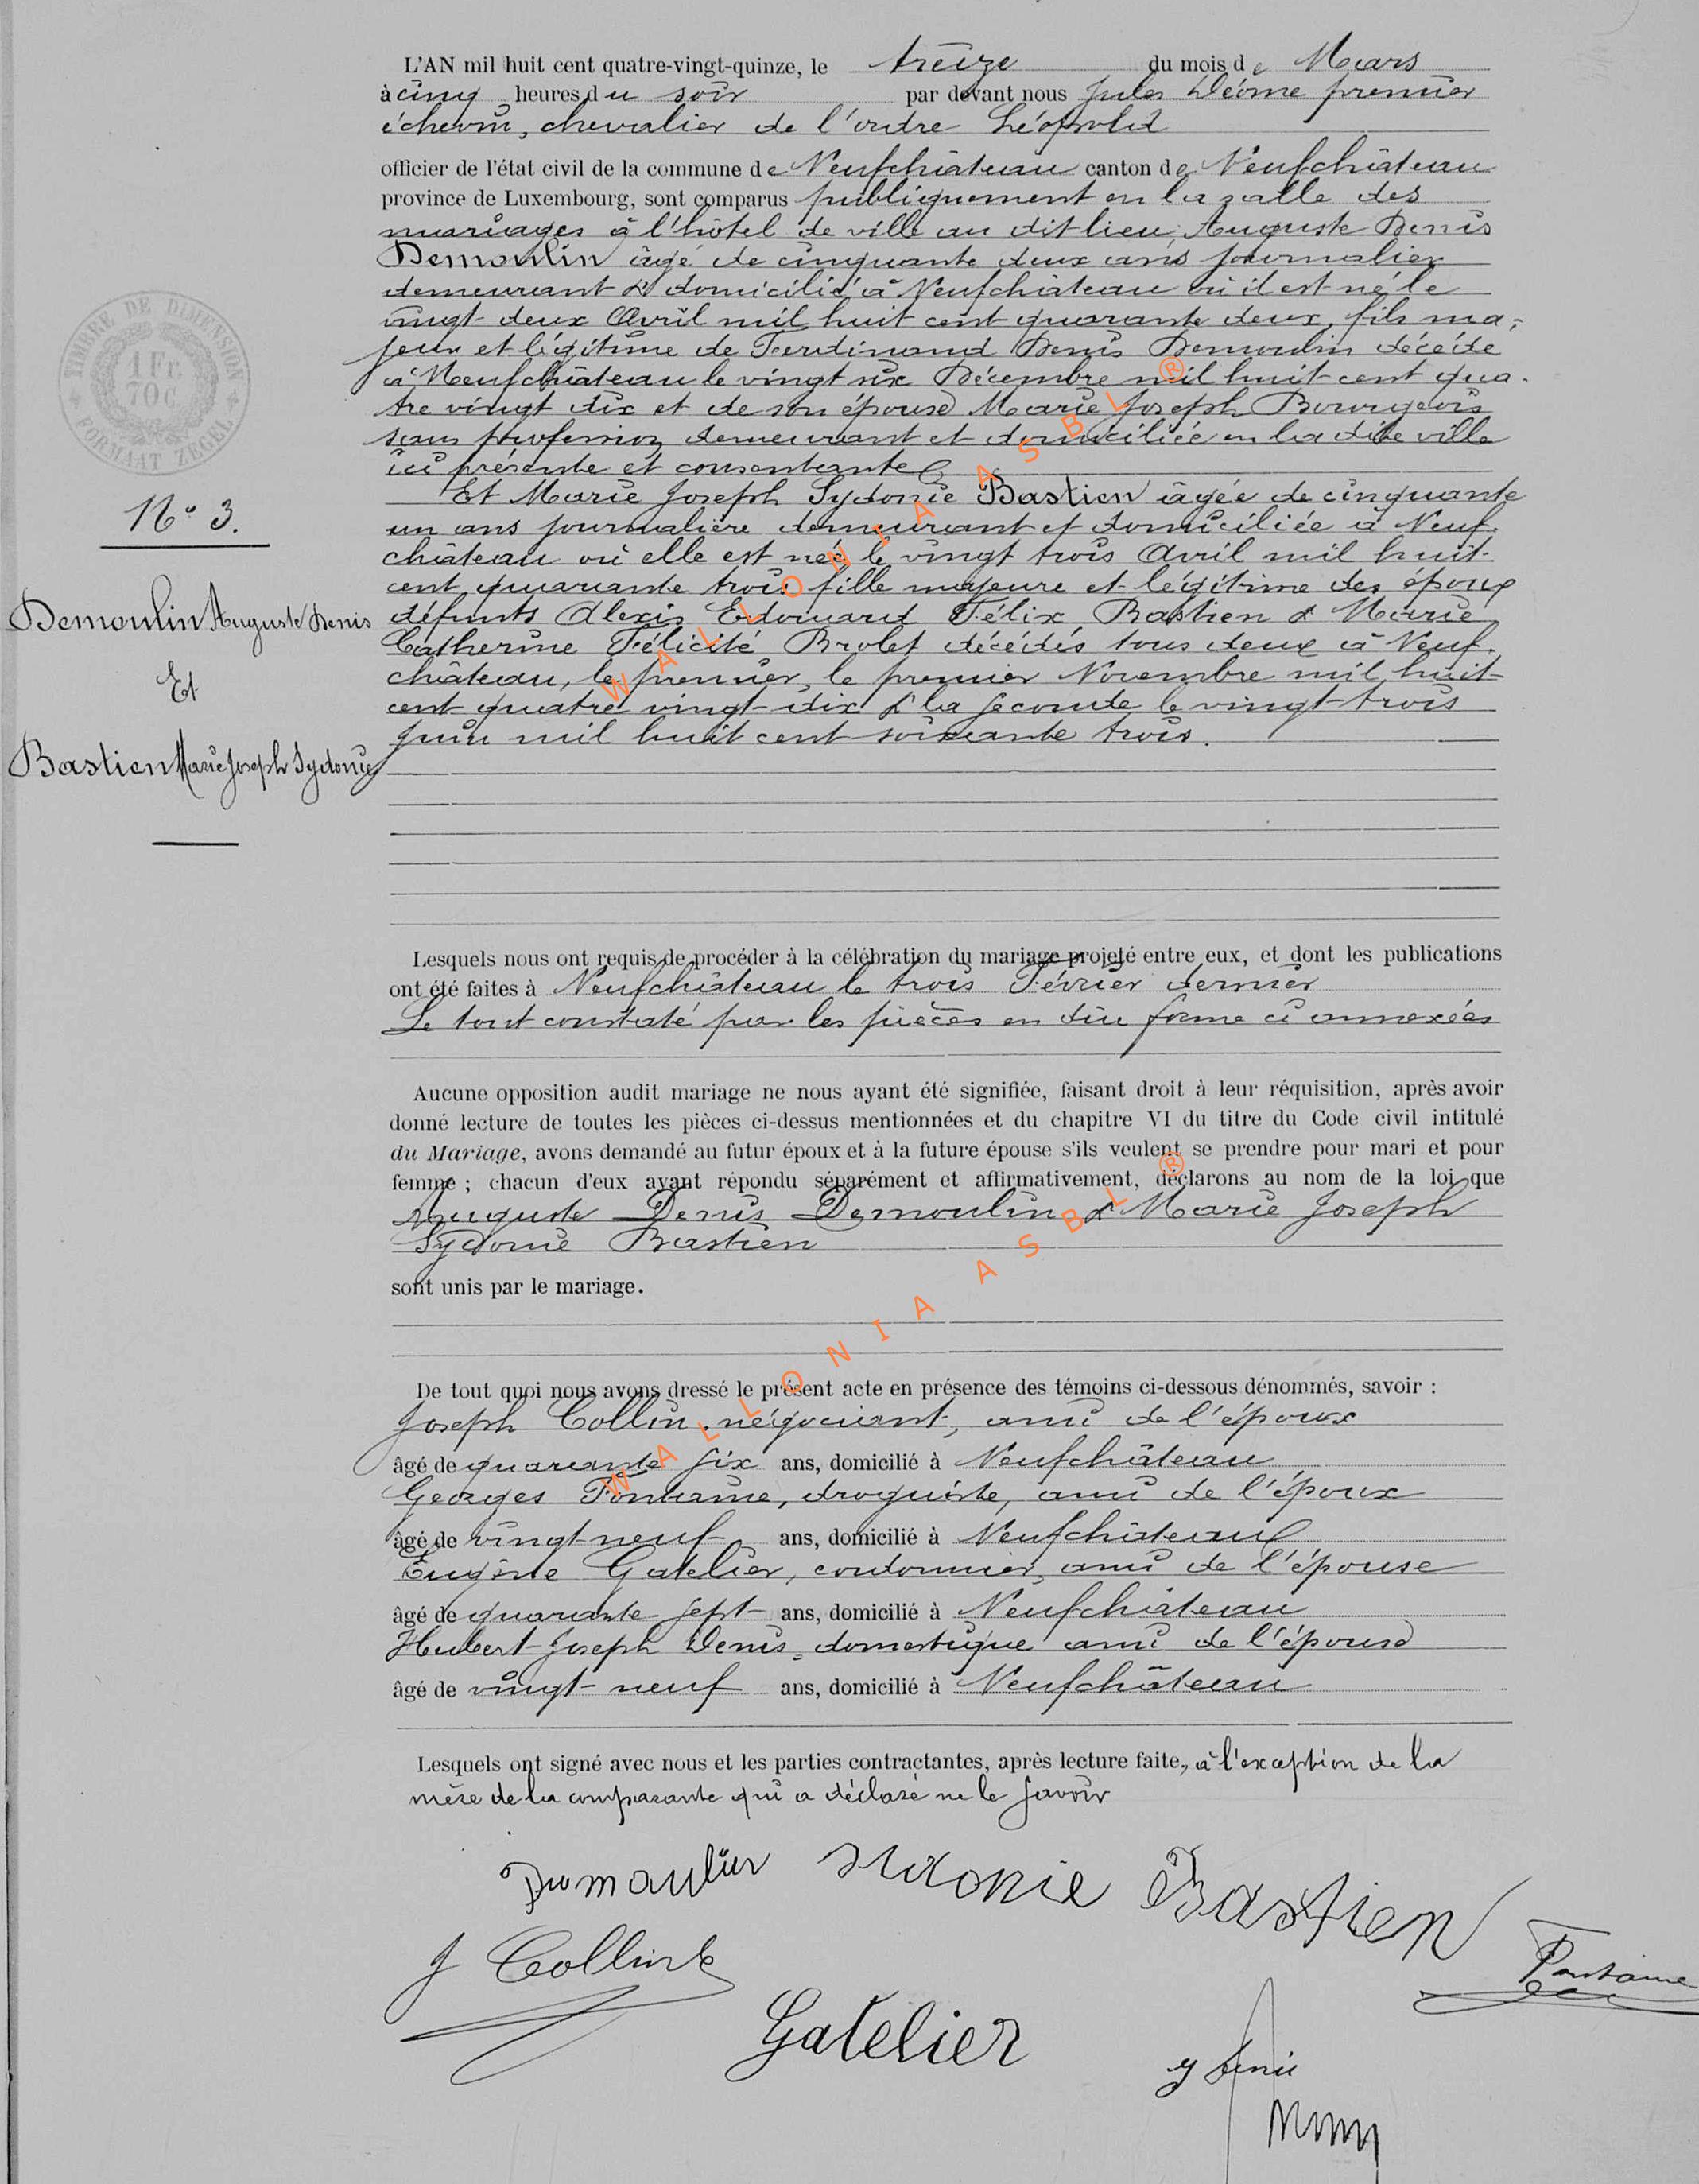 L'AN mil huit cent quatre-vingt-quinze, le treize du mois de Mars
à cinq heures du soir par devant nous Jules Déome premier
échevin, chevalier de l'ordre Léopold
officier de l'état civil de la commune de Neufchâteau canton de Neufchâteau
province de Luxembourg, sont comparus publiquement en la salle des
mariages à l'hôtel de ville au dit lieu, Auguste Denis
Demoulin âgé de cinquante deux ans journalier
demeurant & domicilié à Neufchâteau où il est né le
vingt deux Avril mil huit cent quarante deux, fils ma-
jeur et légitime de Ferdinand Denis Demoulin décédé
à Neufchâteau le vingt six Décembre mil huit cent qua-
tre vingt dix et de son épouse Marie Joseph Bourgeois
sans profession demeurant et domiciliée en la dite ville
ici présente et consentante
Et Marie Joseph Sydonie Bastien âgée de cinquante
un ans journalière demeurant et domiciliée à Neuf-
château où elle est née le vingt trois Avril mil huit
cent quarante trois fille majeure et légitime des époux
défunts Alexis Edouard Félix Bastien & Marie
Catherine Félicité Brolet décédés tous deux à Neuf-
château, le premier, le premier Novembre mil huit
cent quatre vingt-dix & la seconde le vingt-trois
juin mil huit cent soixante trois.
TIMBRE DE DIMENSION
1 Fr.
70 C.
FORMAAT ZEGEL
N° 3.
Demoulin Auguste Denis
Et
Bastien Marie Joseph Sydonie
Lesquels nous ont requis de procéder à la célébration du mariage projeté entre eux, et dont les publications
ont été faites à Neufchâteau le trois Février dernier
Le tout constaté par les pièces en due forme ci annexées
Aucune opposition audit mariage ne nous ayant été signifiée, faisant droit à leur réquisition, après avoir
donné lecture de toutes les pièces ci-dessus mentionnées et du chapitre VI du titre du Code civil intitulé
du Mariage, avons demandé au futur époux et à la future épouse s'ils veulent se prendre pour mari et pour
femme ; chacun d'eux ayant répondu séparément et affirmativement, déclarons au nom de la loi que
Auguste Denis Demoulin & Marie Joseph
Sydonie Bastien
sont unis par le mariage.
De tout quoi nous avons dressé le présent acte en présence des témoins ci-dessous dénommés, savoir :
Joseph Collin, négociant, ami de l'époux
âgé de quarante six ans, domicilié à Neufchâteau
Georges Fontaine, droguiste, ami de l'époux
âgé de vingt neuf ans, domicilié à Neufchâteau
Eugène Gatelier, cordonnier, ami de l'épouse
âgé de quarante sept ans, domicilié à Neufchâteau
Hubert Joseph Denis, domestique ami de l'épouse
âgé de vingt-neuf ans, domicilié à Neufchâteau
Lesquels ont signé avec nous et les parties contractantes, après lecture faite, à l'exception de la
mère de la comparante qui a déclaré ne le savoir
Dumoulin Sidonie Bastien
J Collin Fontaine
Gatelier
WALLONIA ASBL ®
WALLONIA ASBL ®